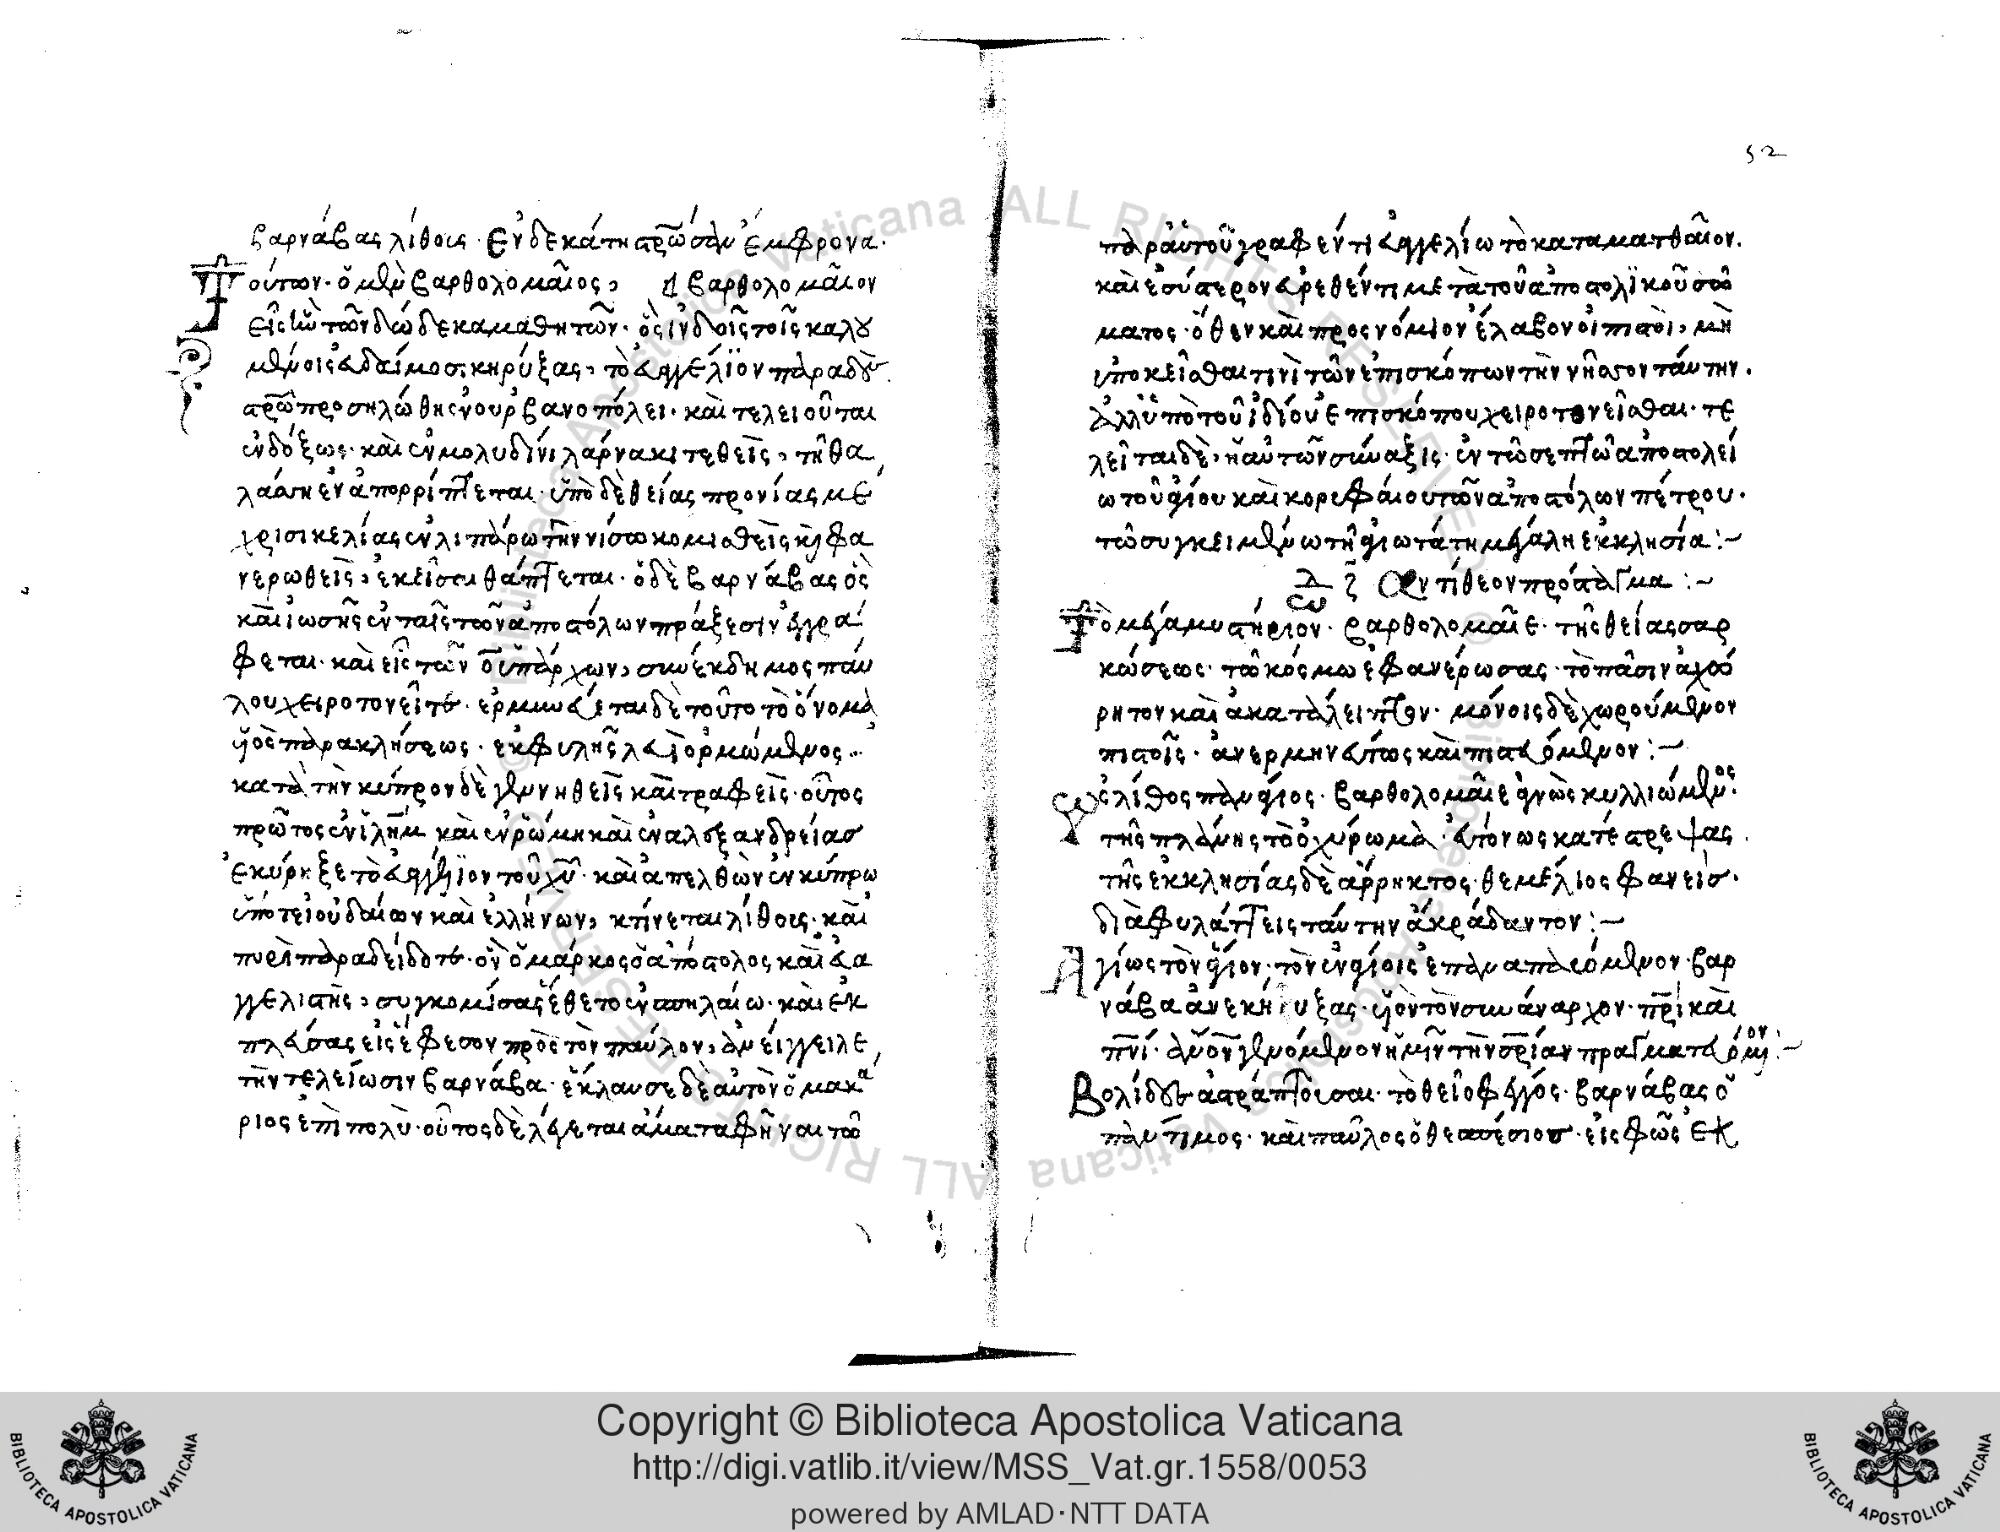 βαρνάβας λίθοις· Ενδεκάτη στρῶσαν ἔμφρονα·
Τούτων· ὁ μὲν βαρθολομαῖος, βαρθολομαῖον
εἷς ἦν τῶν δώδεκα μαθητῶν· ὃς ἰνδοῖς τοῖς καλου
μένοις εὐδαίμοσι κηρύξας, τὸ εὐαγγέλϊον παραδοὺς
στρῶ προσηλώθη ἐν οὐρβανοπόλει· καὶ τελειοῦται
ἐνδόξως· καὶ ἐν μολυδίνι λάρνακι τεθεὶς, τῆ θα
λάσση ἐναπορρίπτεται· ὑπὸ δὲ θείας προνίας μέ
χρι σικελίας ἐν λιπάρω τῆ νίσω κομισθεὶς κ φα
νερωθεὶς, ἐκεῖσαι θάπτεται· ὁ δὲ βαρνάβας ὁς
καὶ ἰωσῆς ἐν ταῖς τῶν ἀποστόλων πράξεσιν ἐγγρά
φεται· καὶ εἷς τῶν ο ὑπάρχων, συνέκδημος παύ
λου χειροτονεῖται· ἑρμηνεύεται δὲ τοῦτο τὸ ὄνομα
υἱὸς παρακλήσεως· ἐκ φυλῆς λευὶ ὁρμώμενος·
κατὰ τὴν κύπρον δὲ γεννηθεὶς καὶ τραφεὶς· οὗτος
πρῶτος ἐν ϊλῆμ καὶ ἐν ρώμη καὶ ἐν αλεξανδρείας
ἐκύρηξε τὸ εὐαγγέλϊον τοῦ χυ· καὶ ἀπελθὼν ἐν κύπρω
ὑπό τε ἰουδαίων καὶ ἑλλήνων, κτίνεται λίθοις· καὶ
πυρὶ παραδείδοται· ὃν ὁ μάρκος ὁ ἀπόστολος καὶ εὐα
γγελιστὴς, συγκομίσας ἔθετο ἐν σπηλαίω· καὶ ἐκ
πλεύσας εἰς ἔφεσον πρὸς τὸν παύλον, ἀνείγγειλε
τὴν τελείωσιν βαρνάβα· ἔκλαυσε δὲ αὐτὸν ὁ μακα
ριος ἐπὶ πολὺ· οὗτος δὲ λέγεται ἅμα ταφῆναι τῶ
52
παρ αὐτοῦ γραφέντι εὐαγγελίω τὸ κατα ματθαῖον.
καὶ ἐσύστερον εὑρεθέντι μετὰ τοῦ ἀποστολϊκοῦ σώ
ματος· ὅθεν καὶ προςνόμιον ἔλαβον οἱ πιστοὶ, μὴ
ὑποκεῖσθαι τινὶ τῶν ἐπισκόπων τὴν νῆσον ταύτην·
ἀλλ ὑπὸ τοῦ ἰδίου ἐπισκόπου χειροτονεῖσθαι· τε
λεῖται δὲ, ἡ αὐτῶν σύναξις· ἐν τῶ σεπτῶ ἀποστολεί
ω τοῦ ἁγίου καὶ κορυφαίου τῶν ἀποστόλων πέτρου·
τῶ συγκειμένω τῆ ἁγιωτάτη μεγάλη ἐκκλησία:~
ὠδὴ ζ Αντίθεον πρόσταγμα:~
Τὸ μέγα μυστήριον· βαρθολομαῖε· τῆς θείας σαρ
κώσεως· τῶ κόσμω ἐφανέρωσας· τὸ πᾶσιν ἀχώ
ρητον καὶ ἀκατάλειπτον· μόνοις δὲ χωρούμενον
πιστοῖς· ἀνερμηνεύτως καὶ πιστευόμενον:~
Ως λίθος πανάγιος· βαρθολομαῖε ἁγνῶς κυλλιώμενος·
τῆς πλάνης τὸ ὀχύρωμα· εὐτόνως κατέστρεψας·
τῆς ἐκκλησίας δὲ ἄρρηκτος· θεμέλιος φανεὶς·
διαφυλάττεις ταύτην ἀκράδαντον:~
Αγίως τὸν ἅγιον· τὸν ἐν ἁγίοις ἐπαναπαυόμενον· βαρ
νάβα ἀνεκήρυξας· υἱὸν τὸν συνάναρχον· πρὶ καὶ
πνί· γενόμενον ἡμῖν τὴν σρίαν πραγματευόμενον:~
Βολίδες ἀστράπτουσαι· τὸ θεῖο φέγγος· βαρνάβας ὁ
πάντιμος· καὶ παῦλος ὁ θεσπέσιος· εἰς φῶς ἐκ
Copyright © Biblioteca Apostolica Vaticana
http://digi.vatlib.it/view/MSS_Vat.gr.1558/0053
powered by AMLAD·NTT DATA
BIBLIOTECA APOSTOLICA VATICANA
BIBLIOTECA APOSTOLICA VATICANA